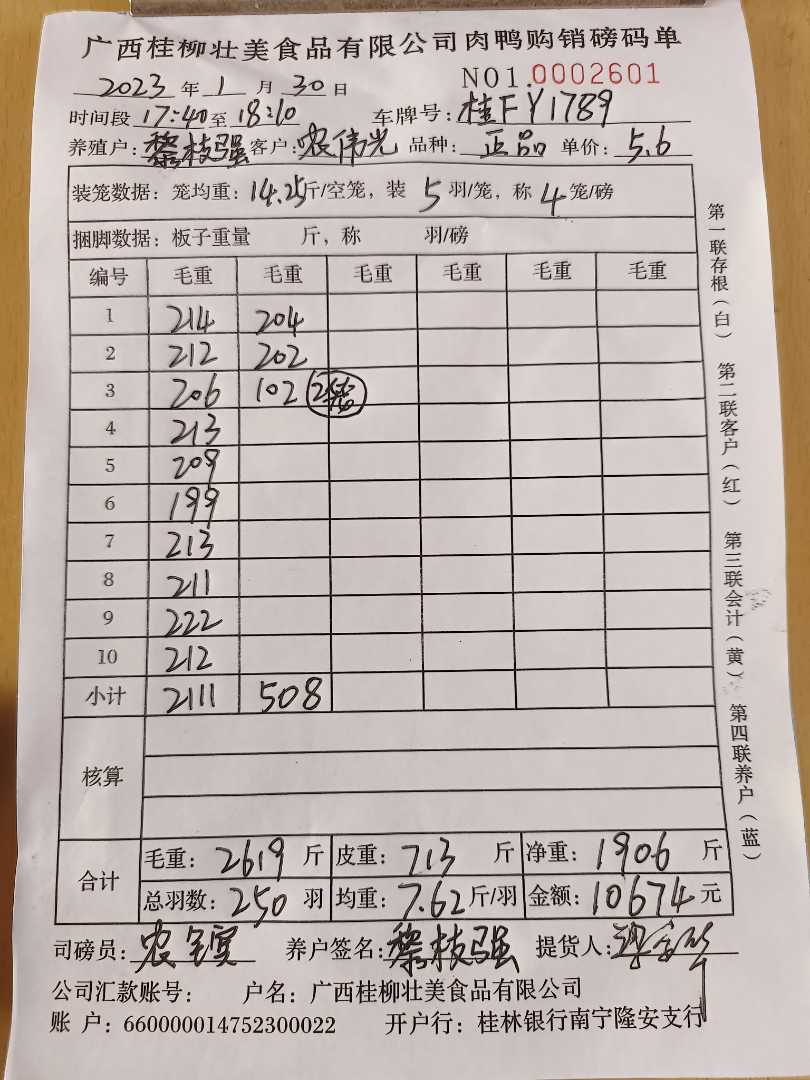 广西桂柳壮美食品有限公司肉鸭购销磅码单
2023 年 1 月 30 日 NO1.0002601
时间段 17:40 至 18:10 车牌号: 桂FY1789
养殖户: 黎枝强 客户: 农伟光 品种: 正品 单价: 5.6
装笼数据: 笼均重: 14.25 斤/空笼, 装 5 羽/笼, 称 4 笼/磅
捆脚数据: 板子重量 斤, 称 羽/磅
编号 毛重 毛重 毛重 毛重 毛重 毛重
1 214 204
2 212 202
3 206 102 2笼
4 213
5 209
6 199
7 213
8 211
9 222
10 212
小计 2111 508
核算
合计
毛重: 2619 斤 皮重: 713 斤 净重: 1906 斤
总羽数: 250 羽 均重: 7.62 斤/羽 金额: 10674 元
司磅员: 农 养户签名: 黎枝强 提货人:
公司汇款账号: 户名: 广西桂柳壮美食品有限公司
账 户: 660000014752300022 开户行: 桂林银行南宁隆安支行
第一联存根(白) 第二联客户(红) 第三联会计(黄) 第四联养户(蓝)